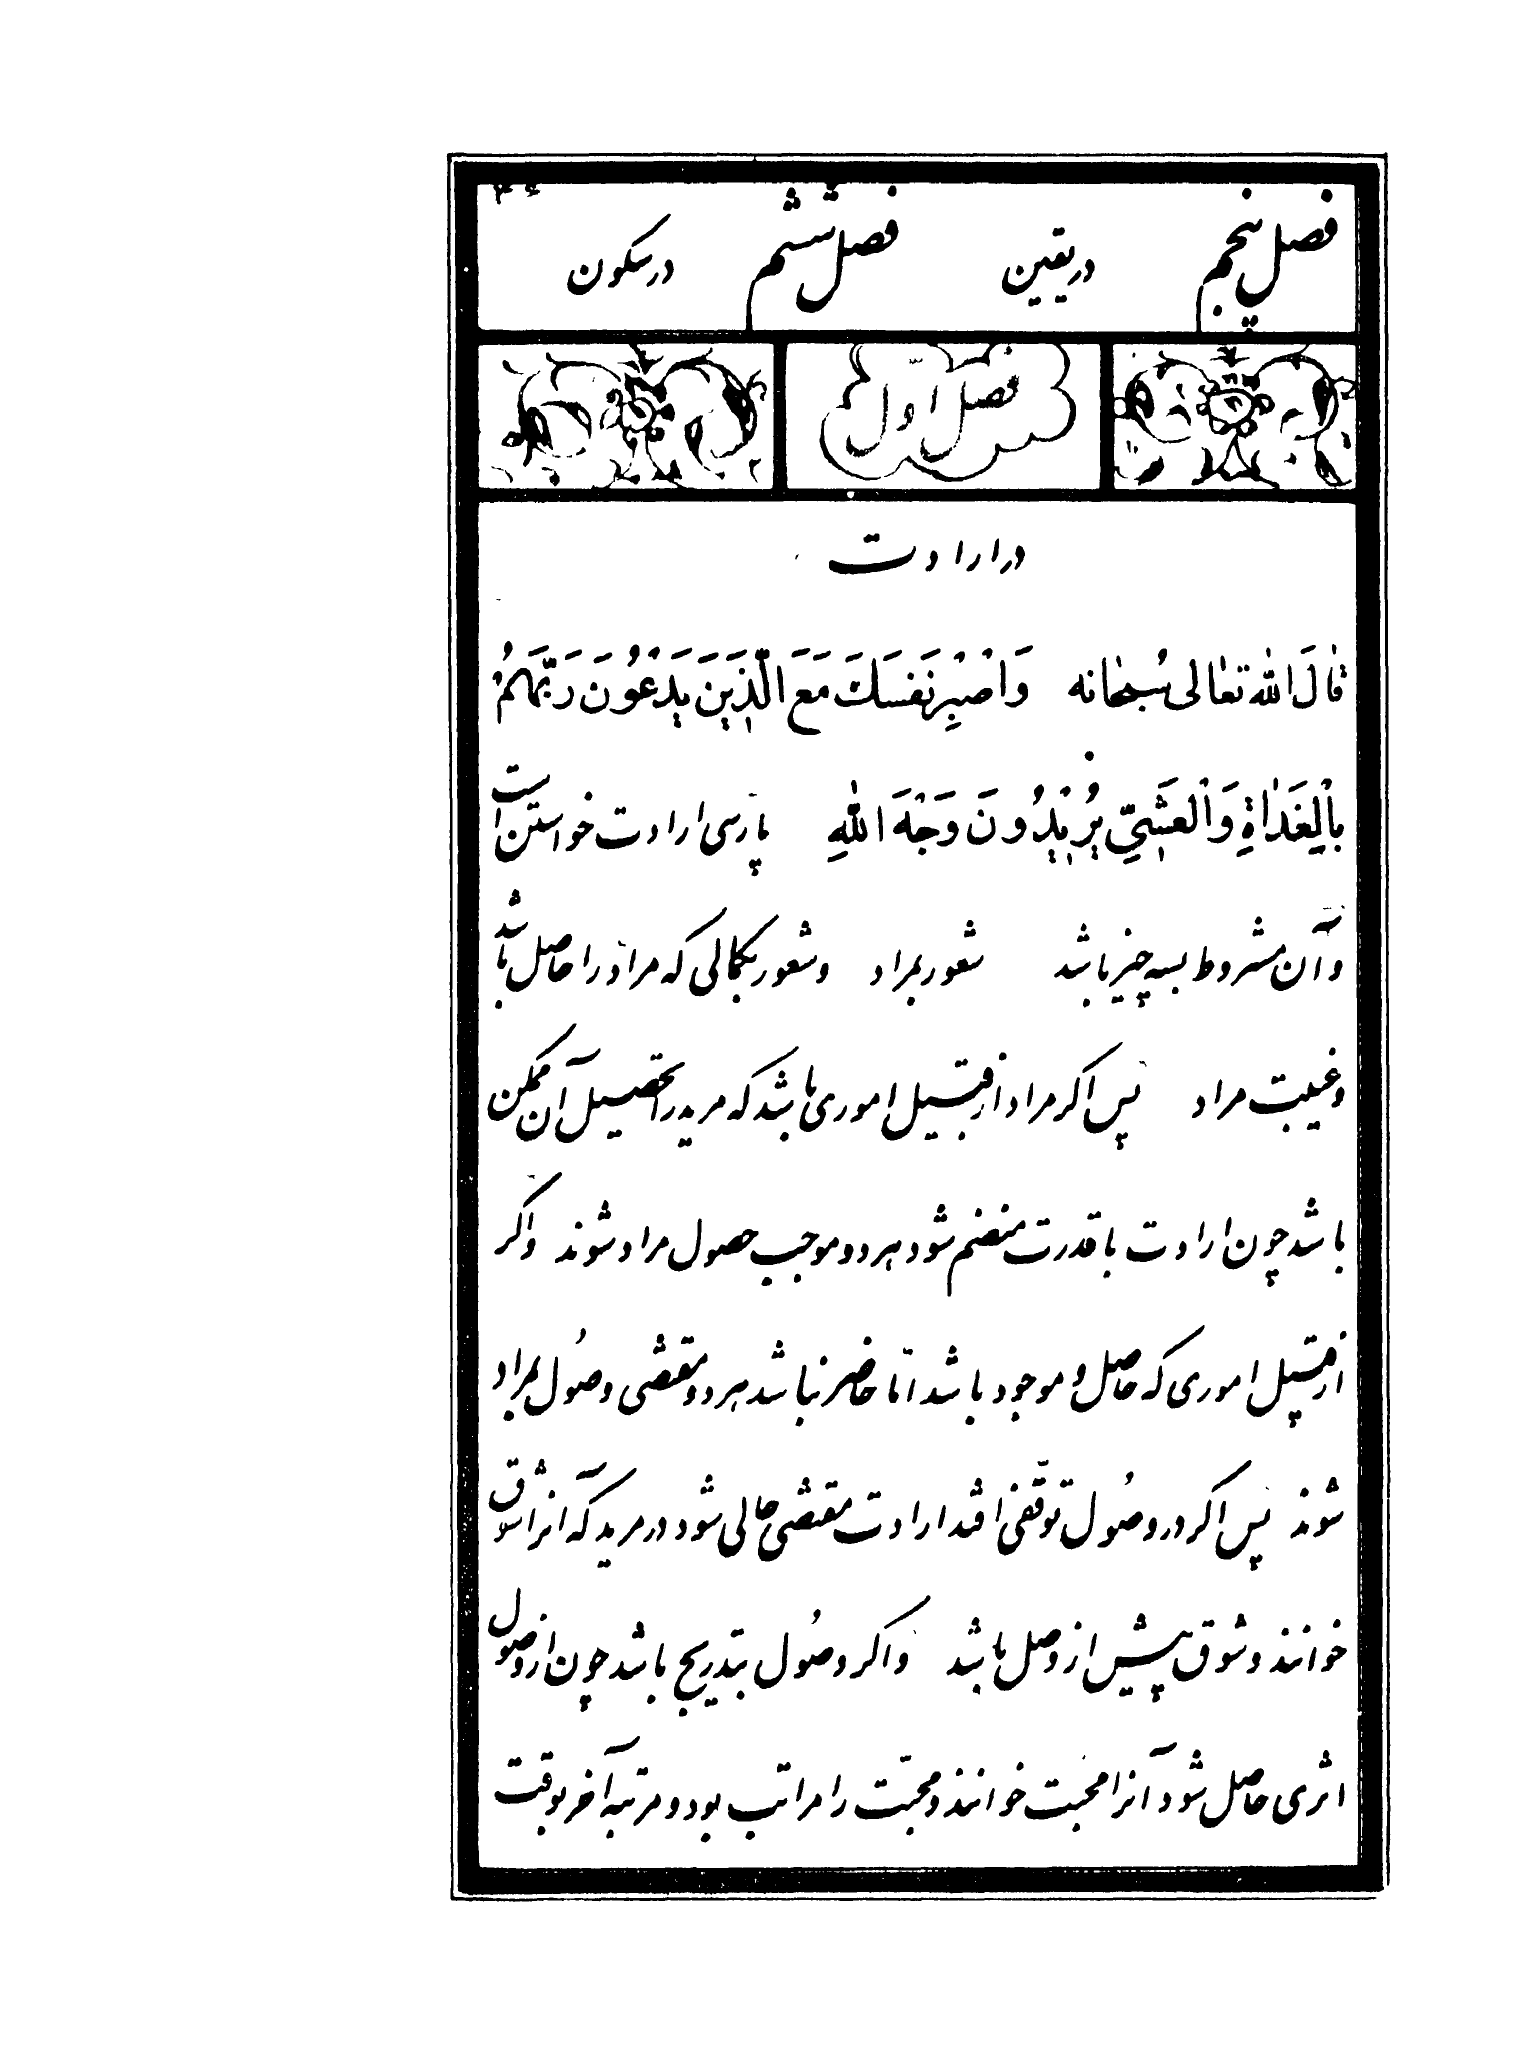 فصل پنجم در یقین فصل ششم در سکون
فصل اوّل
در ارادت
قالَ الله تعالی سُبحانه وَاصْبِرْ نَفسَكَ مَعَ الَّذِینَ یَدْعُونَ رَبَّهُمْ
بِالْغَدٰاةِ وَالْعَشِیِّ یُرِیْدُونَ وَجْهَ اللهِ پارسی ارادت خواستن است
و آن مشروط بسه چیز باشد شعور بمراد و شعور بکمالی که مراد را حاصل باشد
و غیبت مراد پس اکر مراد از قبیل اموری باشد که مرید را تحصیل آن ممکن
باشد چون ارادت با قدرت منضم شود هر دو موجب حصول مراد شوند و اکر
از قبیل اموری که حاصل و موجود باشد امّا حاضر نباشد هر دو مقتضی وصُول بمراد
شوند پس اکر در وصُول توقّفی افتد ارادت مقتضی حالی شود در مرید که آنرا شوق
خوانند و شوق پیش از وصل باشد و اکر وصُول بتدریج باشد چون از وصُول
اثری حاصل شود آنرا محبت خوانند و محبّت را مراتب بود و مرتبه آخر بوقت